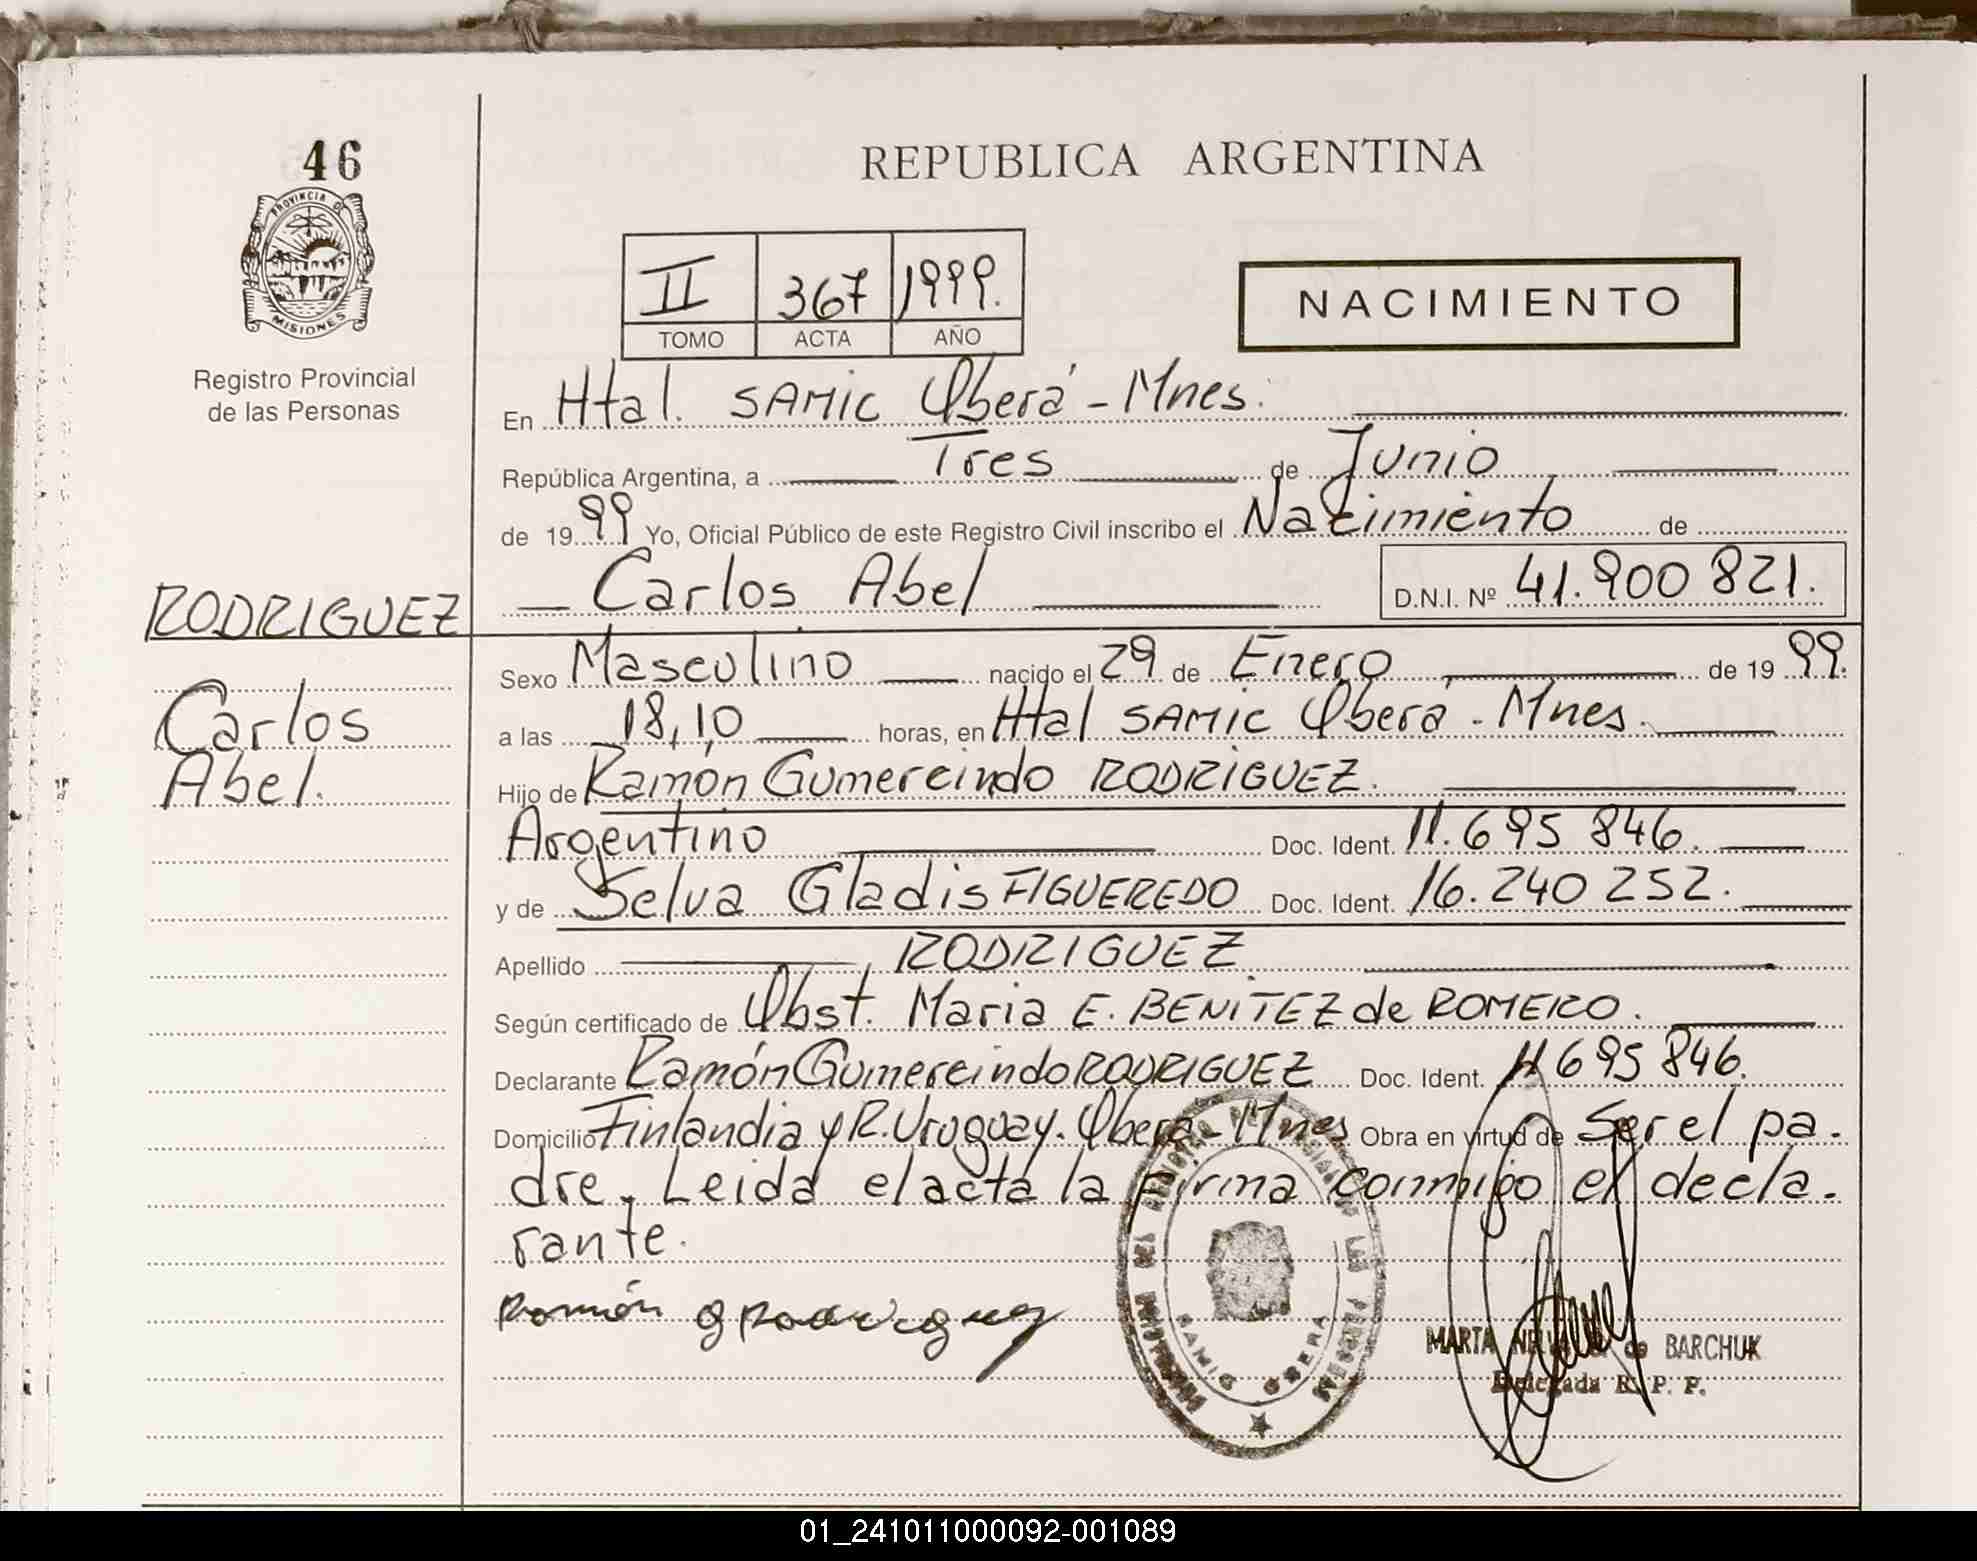 46
PROVINCIA DE
MISIONES
Registro Provincial
de las Personas
REPUBLICA ARGENTINA
II 367 1999.
TOMO ACTA AÑO
NACIMIENTO
En Htal. SAMIC Oberá - Mnes.
República Argentina, a Tres de Junio
de 1999 Yo, Oficial Público de este Registro Civil inscribo el Nacimiento de
Carlos Abel D.N.I. Nº 41.900 821.
RODRIGUEZ
Carlos
Abel.
Sexo Masculino nacido el 29 de Enero de 1999.
a las 18,10 horas, en Htal SAMIC Oberá - Mnes.
Hijo de Ramón Gumercindo RODRIGUEZ.
Argentino Doc. Ident. 11.695 846.
y de Selva Gladis FIGUEREDO Doc. Ident. 16.240 252.
Apellido RODRIGUEZ
Según certificado de Obst. Maria E. BENITEZ de ROMERO.
Declarante Ramón Gumercindo RODRIGUEZ Doc. Ident. 11 695 846.
Domicilio Finlandia y R. Uruguay. Oberá - Mnes Obra en virtud de Ser el pa-
dre. Leida el acta la firma conmigo el decla-
rante.
Ramón G Rodriguez
SAMIC OBERA
MARTA de BARCHUK
Delegada R. P. P.
01_241011000092-001089